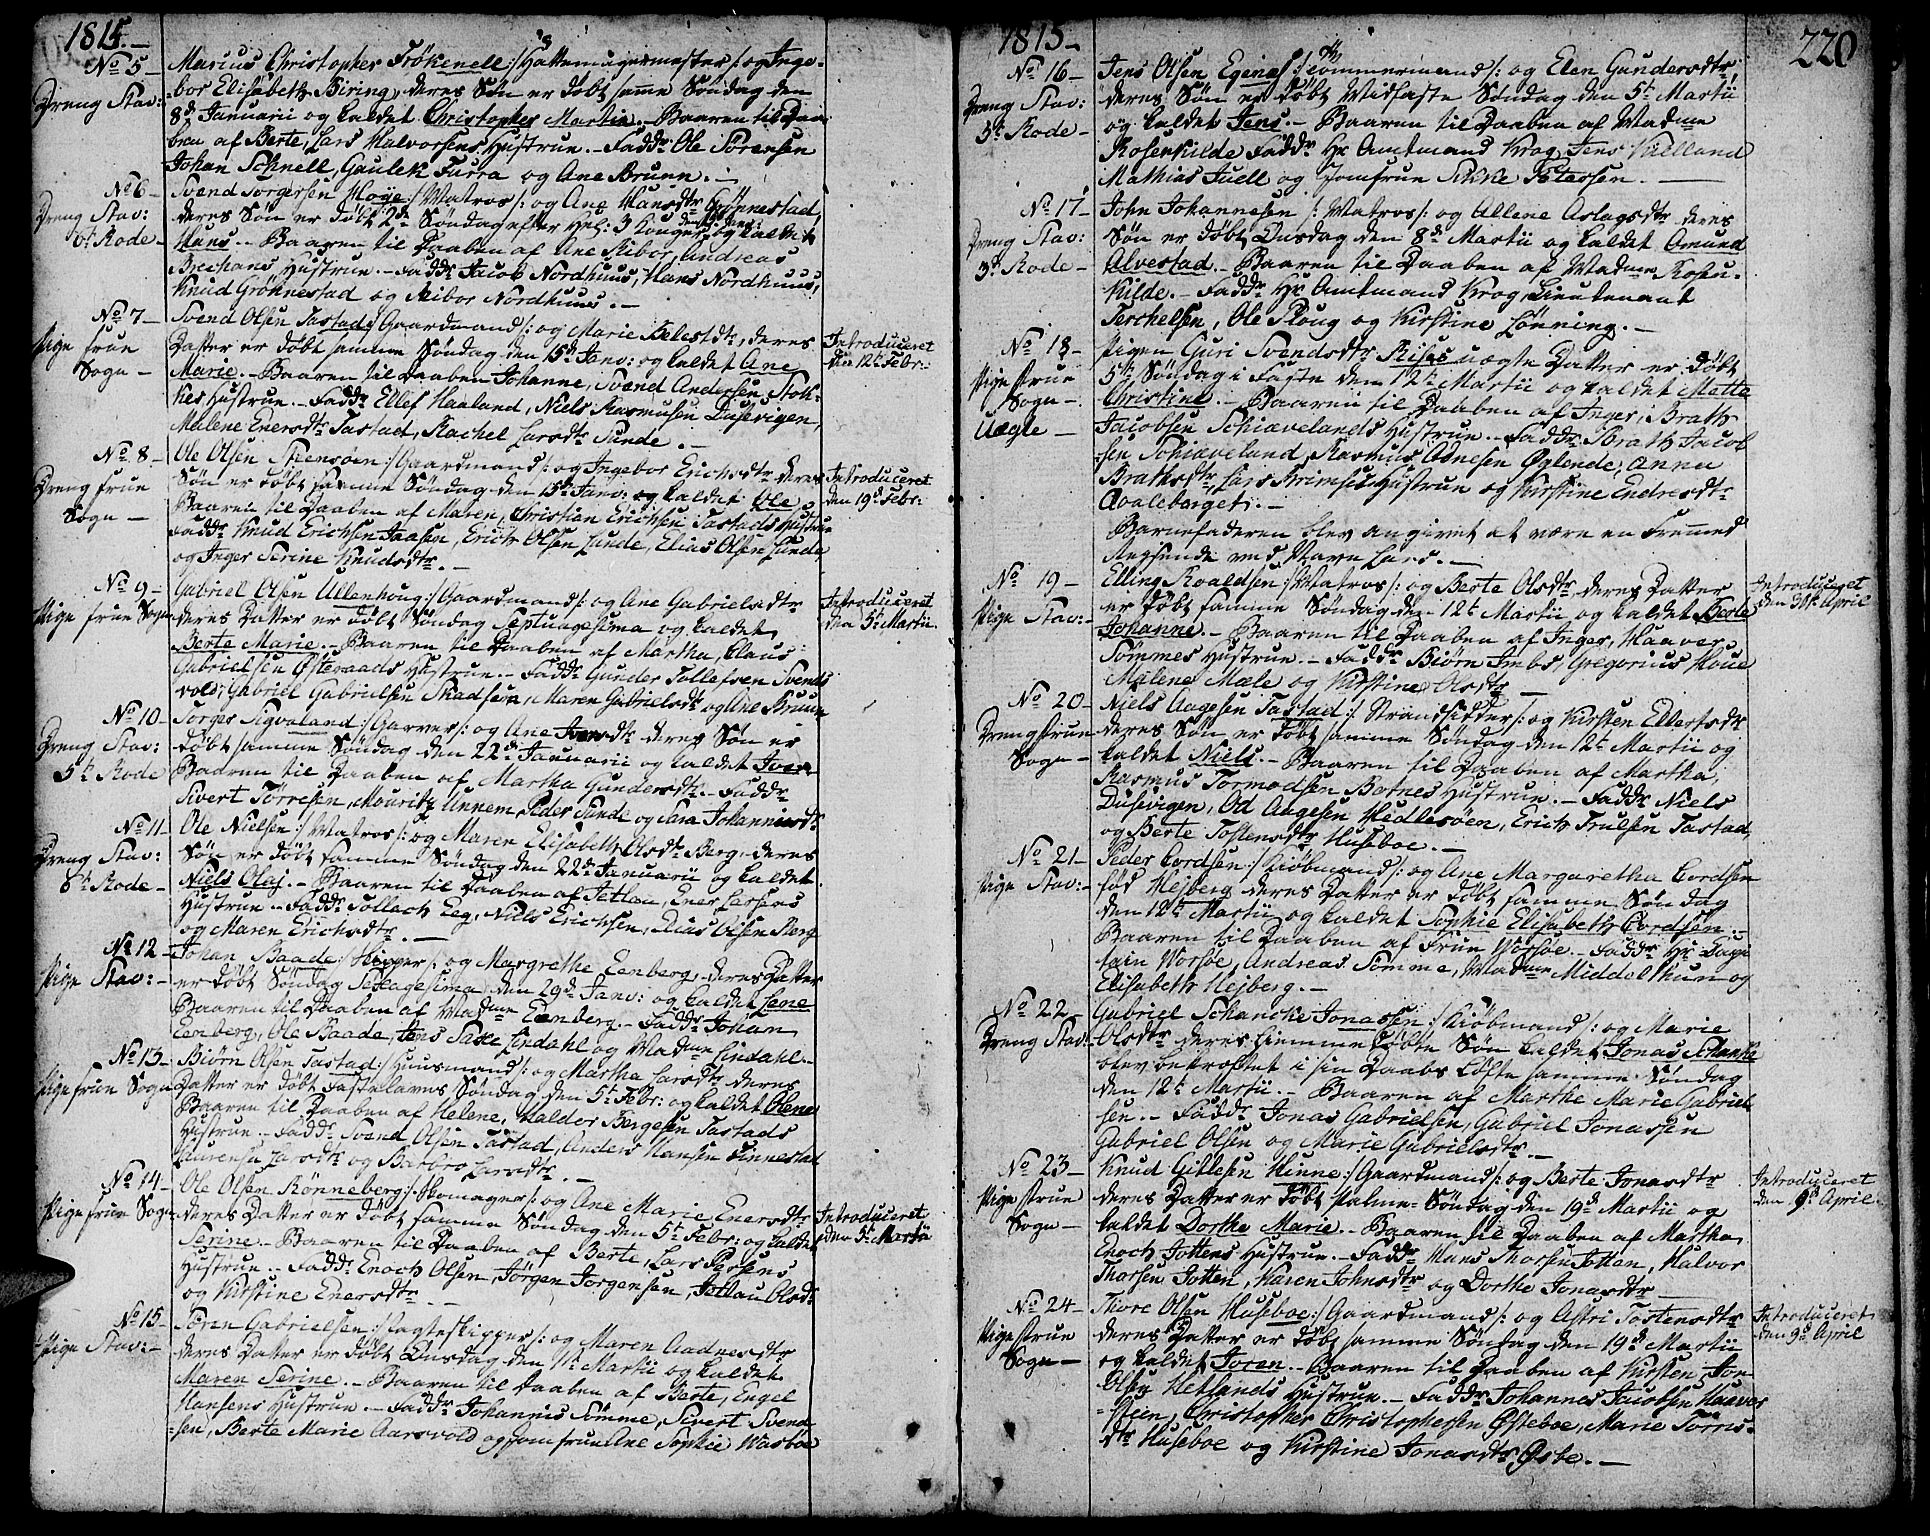 1815.
No 5 Marius Christopher Frökenell /: Hattemagermester :/ og Inge-
Dreng Stav: bor Elisabeth Biring, deres Søn er døbt samme Søndag den
8de Januarii og kaldet Christopher Martin. Baaren til Daa-
ben af Berte, Lars Halvorsens Hustrue. Faddr Ole Sørensen
Johan Schnell, Gaulek Furra og Ane Brunn.
No 6 Svend Torgersen Höye /: Matros :/ og Ane Hansdtr Grönnestad,
Dreng Stav: deres Søn er døbt 2de Søndag efter Hel: 3 Konger, og kaldet
6te Rode Hans. Baaren til Daaben af Ane Kibor, Andreas
Brechans Hustrue. Faddr Jacob Nordhuus, Hans Nordhuus,
Knud Grönnestad og Kibor Nordhuus.
No 7 Svend Olsen Tastad /: Gaardmand :/ og Marie deres
Pige frue Datter er døbt samme Søndag den 15de Janv: og kaldet Ane
Sogn Marie. Baaren til Daaben Johanne, Svend Andersen Stok-
kes Hustrue. Faddr Ellef Haaland, Niels Rasmusen Dusevigen,
Malene Enersdtr Tastad, Rachel Larsdtr Sunde.
Introduceret
den 12te Febr:
No 8 Ole Olsen Steensøen /: Gaardmand :/ og Ingebor Erichsdtr deres
Dreng frue Søn er døbt samme Søndag den 15de Janv: og kaldet Ole
Sogn Baaren til Daaben af Maren, Christian Erichsen Tastads Hustrue
Faddr Knud Erichsen Erich Olsen Sunde, Elias Olsen Sunde
og Inger Serine Knudsdtr.
Introduceret
den 19de Febr:
No 9 Gabriel Olsen Ullenhoug /: Gaardmand :/ og Ane Gabrielsdtr
Pige frue Sogn deres Datter er døbt Søndag Septuagesima og kaldet
Berte Marie. Baaren til Daaben af Martha, Claus
Gabrielsen Østeraads Hustrue. Faddr Gunder Tollefsen Svends
vold, Gabriel Gabrielsen Maren Gabrielsdtr og Ane
Introduceret
den 5te Martii
No 10 Torger Sigvaland /: Garver :/ og Ane Iversdtr deres Søn er
Dreng Stav: døbt samme Søndag den 22de Januarii og kaldet Iver
5te Rode Baaren til Daaben af Martha Gundersdtr. Faddr
Sivert Törresen, Mouritz Unnem, Peder Sunde og Sara Johannisdtr
No 11 Ole Nielsen /: Matros :/ og Maren Elisabeth Olsdtr Berg, deres
Dreng Stav: Søn er døbt samme Søndag den 22de Januarii og kaldet
8te Rode Niels Olaj. Baaren til Daaben af Jetlau, Ener Larsens
Hustrue. Faddr Tollach Eeg, Niels Erichsen, Elias Olsen Berg
og Maren Erichsdtr.
No 12 Johan Baade /: Skipper :/ og Margrethe Eenberg, deres Datter
Pige Stav: er døbt Søndag Sexagesima den 29de Janv: og kaldet Lene
Baaren til Daaben af Madme Eenberg. Faddr Johan
Eenberg, Ole Baade, Jens Saxe Lindahl og Madme Lindahl.
No 13 Biørn Olsen Tastad /: Huusmand :/ og Martha Larsdtr deres
Pige frue Sogn Datter er døbt Fastelavns Søndag den 5te Febr: og kaldet Olene
Baaren til Daaben af Helene, Halder Bergesen Tastads
Hustrue. Faddr Svend Olsen Tastad, Anders Hansen Finnestad
Laurensa Larsdtr og Barbro Larsdtr.
No 14 Ole Olsen Rönneberg /: Skomager :/ og Ane Marie Enersdtr
Pige frue Sogn deres Datter er døbt samme Søndag den 5te Febr: og kaldet
Serine. Baaren til Daaben af Berte, Lars Persens
Hustrue. Faddr Enoch Olsen, Jörgen Jorgensen, Jetlau Olsdtr
og Kirstine Enersdtr.
Introduceret
den 5te Martii
No 15 Søren Gabrielsen /: Jagteskipper :/ og Maren Aadnesdtr
Pige Stav: deres Datter er døbt Onsdag den 1te Martii og kaldet
Maren Serine. Baaren til Daaben af Berte, Engel
Hansens Hustrue. Faddr Johannis Sömme, Sivert Svend-
sen, Berte Marie Aarsvold og Jomfrue Ane Sophie Warböe
1815
220
No 16 Jens Olsen Egenes /: Tömmermand :/ og Elen Gundersdtr
Dreng Stav: deres Søn er døbt Midfaste Søndag den 5te Martii
5te Rode og kaldet Jens. Baaren til Daaben af Madme
Rosenkilde Faddr Hr Amtmand Krog, Jens Kielland
Mathias Juell og Jomfrue Sikke Petersen.
No 17 John Johannesen /: Matros :/ og Allene Aslagsdtr deres
Dreng Stav: Søn er døbt Onsdag den 8de Martii og kaldet Omund
3de Rode Alvestad. Baaren til Daaben af Madme Rosen-
kilde. Faddr Hr Amtmand Krog, Lieutenant
Terchelsen, Ole Ploug og Kirstine Lønning.
No 18 Pigen Guri Svendsdtr Riises uægte Datter er døbt
Pige frue 5te Søndag i Faste den 12te Martii og kaldet Mette
Sogn Christine. Baaren til Daaben af Inger, Brath
Uægte Jacobsen Schiævelands Hustrue. Faddr Brath Jacob-
sen Schiæveland, Rasmus Odnesen Øglende, Anna
Brathsdtr, Lars Hustrue og Kirstine Endresdtr
Avaleberget.
Barnefaderen blev angivet at være en Fremmed
Reysende ved Navn Lars.
No 19 Elling Roaldsen /: Matros :/ og Berte Olsdtr, deres Datter
Pige Stav: er døbt samme Søndag den 12te Martii og kaldet Berte
Johanne. Baaren til Daaben af Inger, Haaver
Sømmes Hustrue. Faddr Biørn Imbs, Gregorius Houe
Malene Mæle og Kirstine Olsdtr
Introduceret
den 30te April
No 20 Niels Aagesen Tastad /: Strandsidder :/ og Kirsten Ellertsdtr
Dreng frue deres Søn er døbt samme Søndag den 12te Martii og
Sogn kaldet Niels. Baaren til Daaben af Martha,
Rasmus Tormodsen Botnes Hustrue. Faddr Niels
Dusevigen, Od Aagesen Hedlesøen, Erich Trulsen Tastad
og Berte Tostensdtr Huseboe.
No 21 Peder Cordsen /: Kiøbmand :/ og Ane Margaretha Cordsen
Pige Stav: fød Hejberg deres Datter er døbt samme Søndag
den 12te Martii og kaldet Sophie Elisabeth Cordsen.
Baaren til Daaben af Frue Worsøe. Faddr Hr Capi-
tain Worsøe, Andreas Sømme, Madme Middelthun og
Elisabeth Hejberg.
No 22 Gabriel Schancke Jonassen /: Kiøbmand :/ og Marie
Dreng Stav: Olsdtr deres hiemmedøbte Søn kaldet Jonas Schanke
blev bekræftet i sin Daabs Løfte samme Søndag
den 12te Martii. Baaren af Marthe Marie Gabriel-
sen. Faddr Jonas Gabrielsen, Gabriel Jonassen
Gabriel Olsen og Marie Gabrielsdtr.
No 23 Knud Gitlesen Hinne /: Gaardmand :/ og Berte Jonasdtr
Pige frue deres Datter er døbt Palme Søndag den 19de Martii og
Sogn kaldet Dorthe Marie. Baaren til Daaben af Martha,
Enoch Jottens Hustrue. Faddr Hans Thorsen Jotten, Halvor
Thorsen Jotten, Karen Johnsdtr og Dorthe Jonasdtr
Introduceret
den 9de April
No 24 Thore Olsen Huseboe /: Gaardmand :/ og Astri Tostensdtr
Pige frue deres Datter er døbt samme Søndag den 19de Martii
Sogn og kaldet Joren. Baaren til Daaben af Kirsten, Jon
Olsen Hetlands Hustrue. Faddr Johannes Jacobsen Haaver-
steen, Christopher Christophersen Østeboe, Marie Torris-
dtr Huseboe og Kirstine Jonasdtr Østbø.
Introduceret
den 9de April